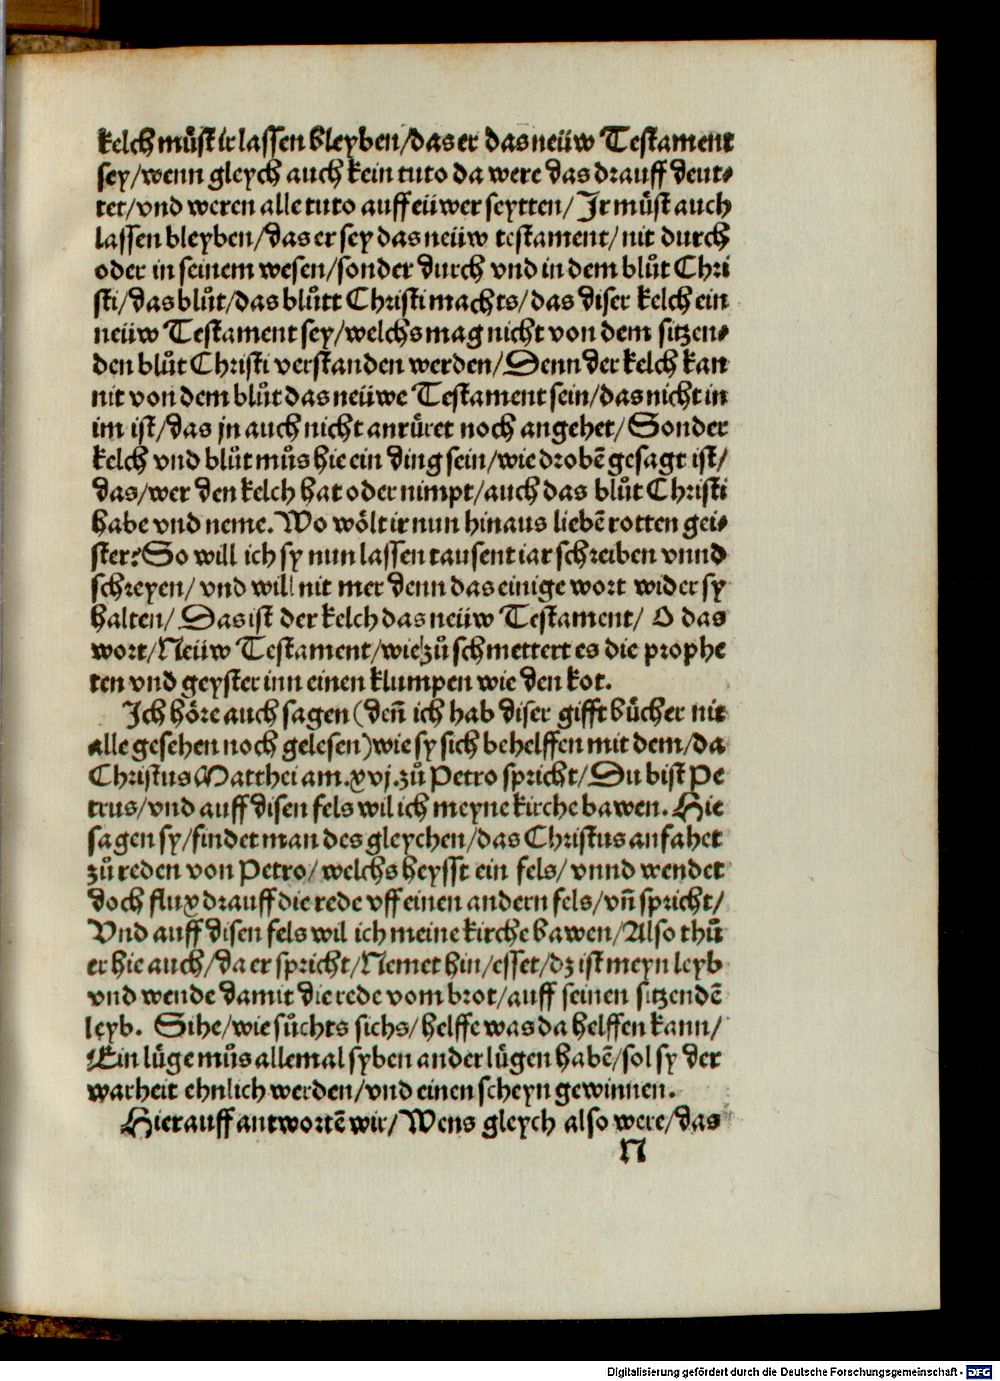 kelch muͤst ir lassen bleyben/das er das neüw Testament
sey/wenn gleych auch kein tuto da were das drauff deut⸗
tet/vnd weren alle tuto auff eüwer seytten/ Jr muͤst auch
lassen bleyben/das er sey das neüw testament/nit durch
oder in seinem wesen/sonder durch vnd in dem bluͦt Chri
sti/das bluͦt/das bluͦtt Christi machts/das diser kelch ein
neüw Testament sey/welchs mag nicht von dem sitzen⸗
den bluͦt Christi verstanden werden/Denn der kelch kan
nit von dem bluͦt das neüwe Testament sein/das nicht in
im ist/das jn auch nicht anruͤret noch angehet/ Sonder
kelch vnd bluͦt muͦs hie ein ding sein/wie drobē gesagt ist/
das/wer den kelch hat oder nimpt/auch das bluͦt Christi
habe vnd neme. Wo woͤlt ir nun hinaus liebē rotten gei⸗
ster? So will ich sy nun lassen tausent iar schreiben vnnd
schreyen/ vnd will nit mer denn das einige wort wider sy
halten/ Das ist der kelch das neüw Testament/ O das
wort/Neüw Testament/wie zuͦ schmettert es die prophe
ten vnd geyster inn einen klumpen wie den kot.
Ich hoͤre auch sagen (deñ ich hab diser gifft buͤcher nit
alle gesehen noch gelesen)wie sy sich behelffen mit dem/da
Christus Matthei am.xvj.zuͦ Petro spricht/Du bist Pe
trus/vnd auff disen fels wil ich meyne kirche bawen. Hie
sagen sy/findet man des gleychen/das Christus anfahet
zuͦ reden von Petro/ welchs heysst ein fels/ vnnd wendet
doch flux drauff die rede vff einen andern fels/vñ spricht/
Vnd auff disen fels wil ich meine kirche bawen/Also thuͦ
er hie auch/da er spricht/Nemet hin/esset/dz ist meyn leyb
vnd wende damit die rede vom brot/auff seinen sitzendē
leyb. Sihe/wie suͦchts sichs/helffe was da helffen kann/
Ein luͤge muͦs allemal syben ander luͤgen habē/sol sy der
warheit ehnlich werden/vnd einen scheyn gewinnen.
Hierauff antwortē wir/ Wens gleych also were/das
N
Digitalisierung gefördert durch die Deutsche Forschungsgemeinschaft - DFG